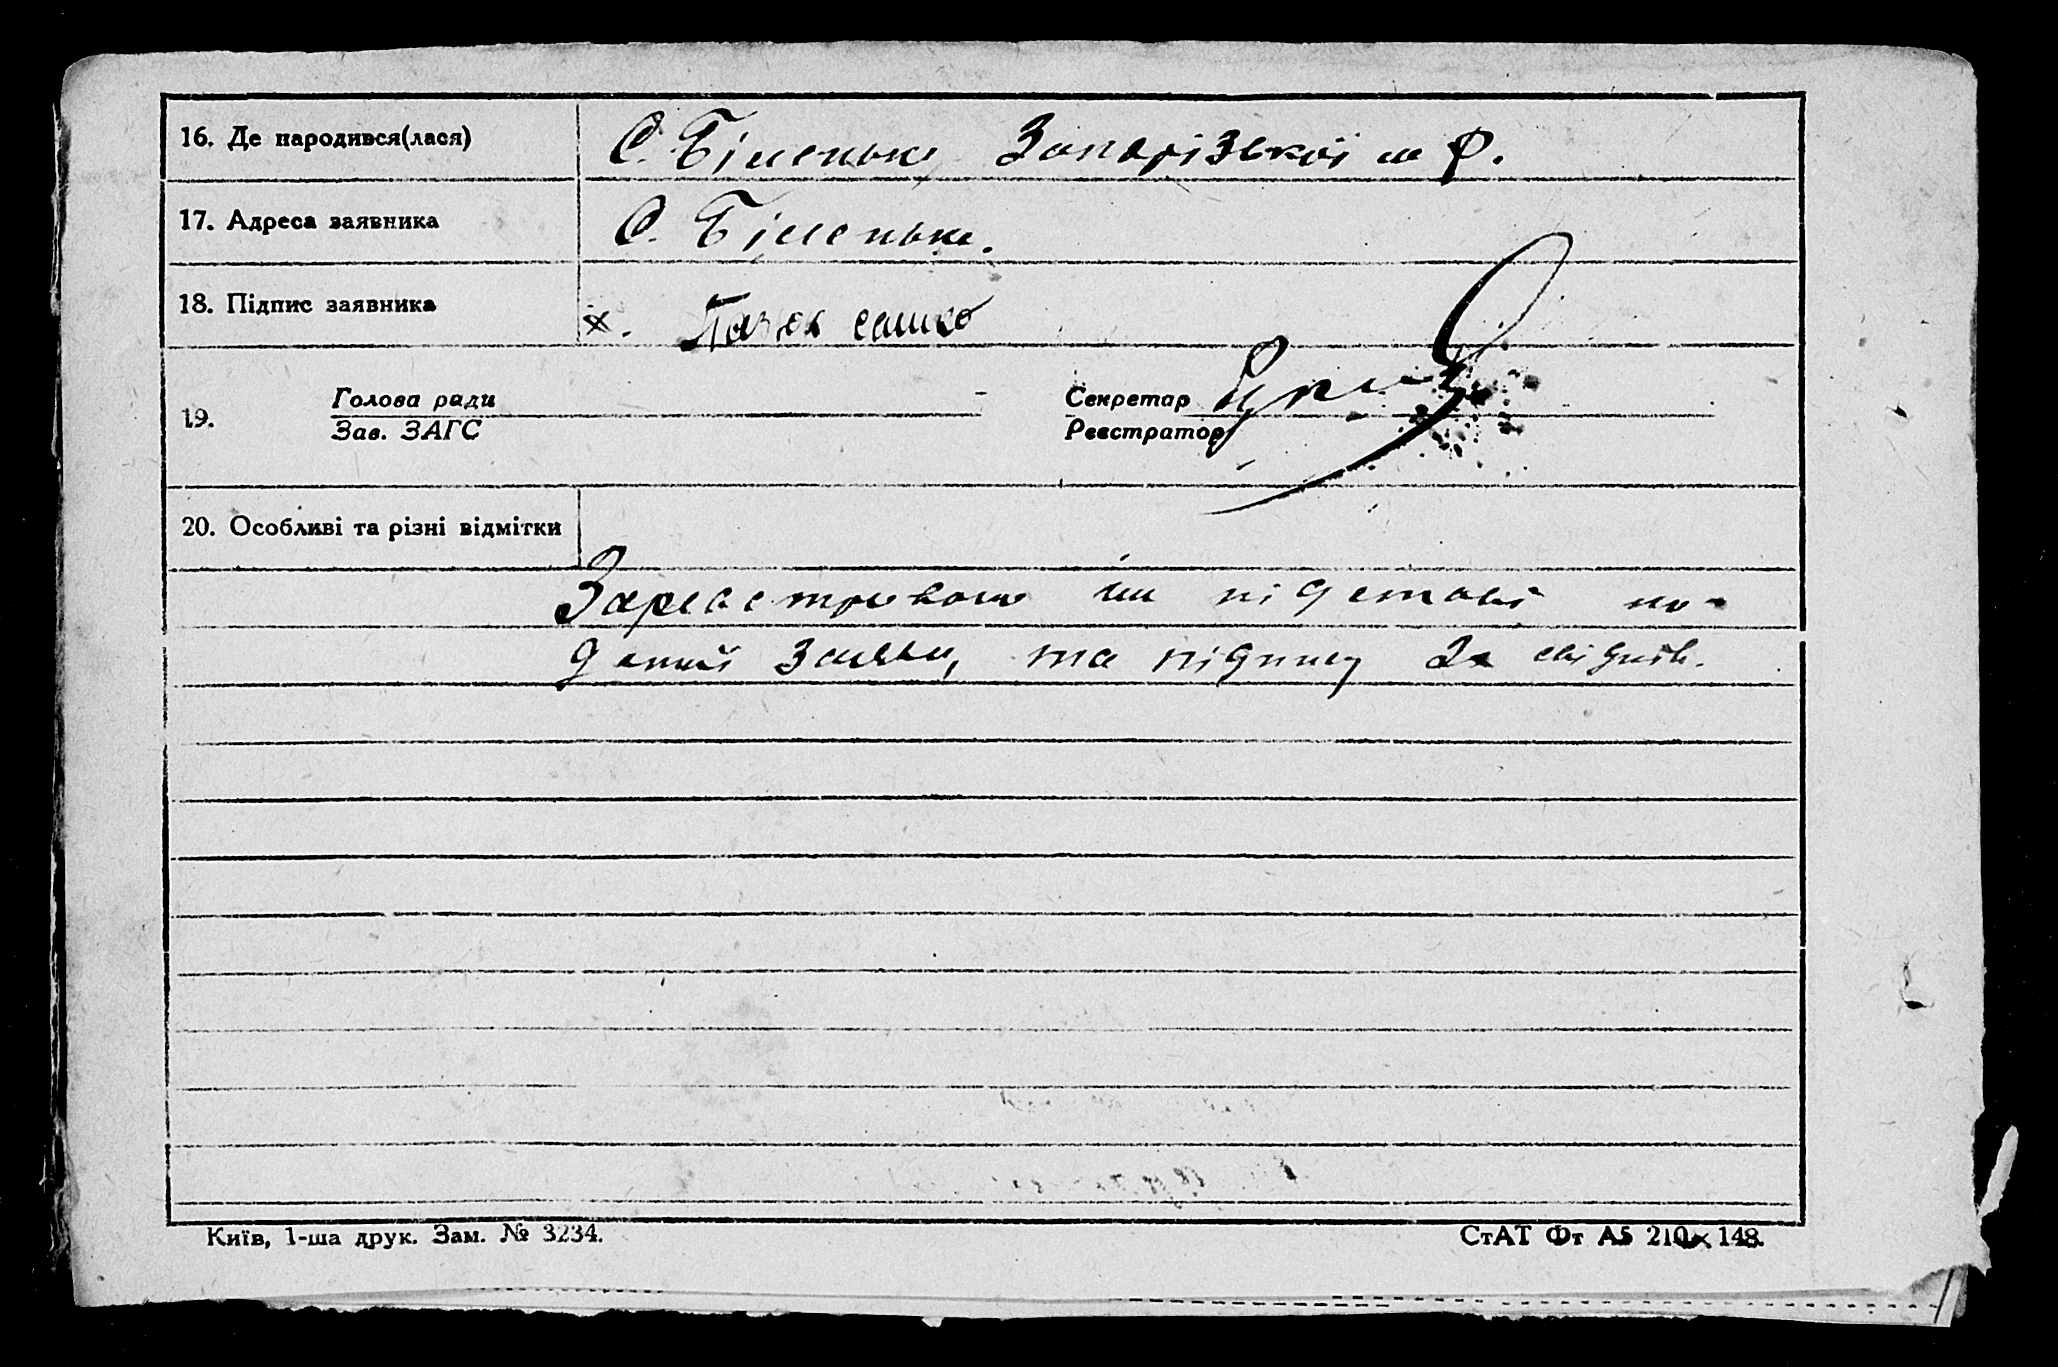 16. Де народився(лася) С. Біленьке Запорізької
17. Адреса заявника С. Біленьке.
18. Підпис заявника х.
19. Голова ради Секретар
Зав. ЗАГС Реєстратор
20. Особливі та різні відмітки
Зареєстровано на підставі по-
даної заяви, та підпису 2х свідків.
Київ, 1-ша друк. Зам. № 3234.
СтАТ Фт А5 210×148.